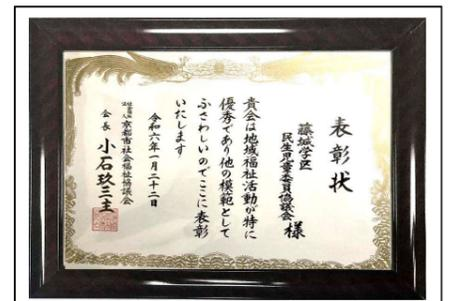 表彰状
藤城学区
民生児童委員協議会 様
貴会は地域福祉活動が特に
優秀であり他の模範として
ふさわしいのでここに表彰
いたします
令和六年一月二十二日
社会福祉法人 京都市社会福祉協議会
会長 小石玖三主